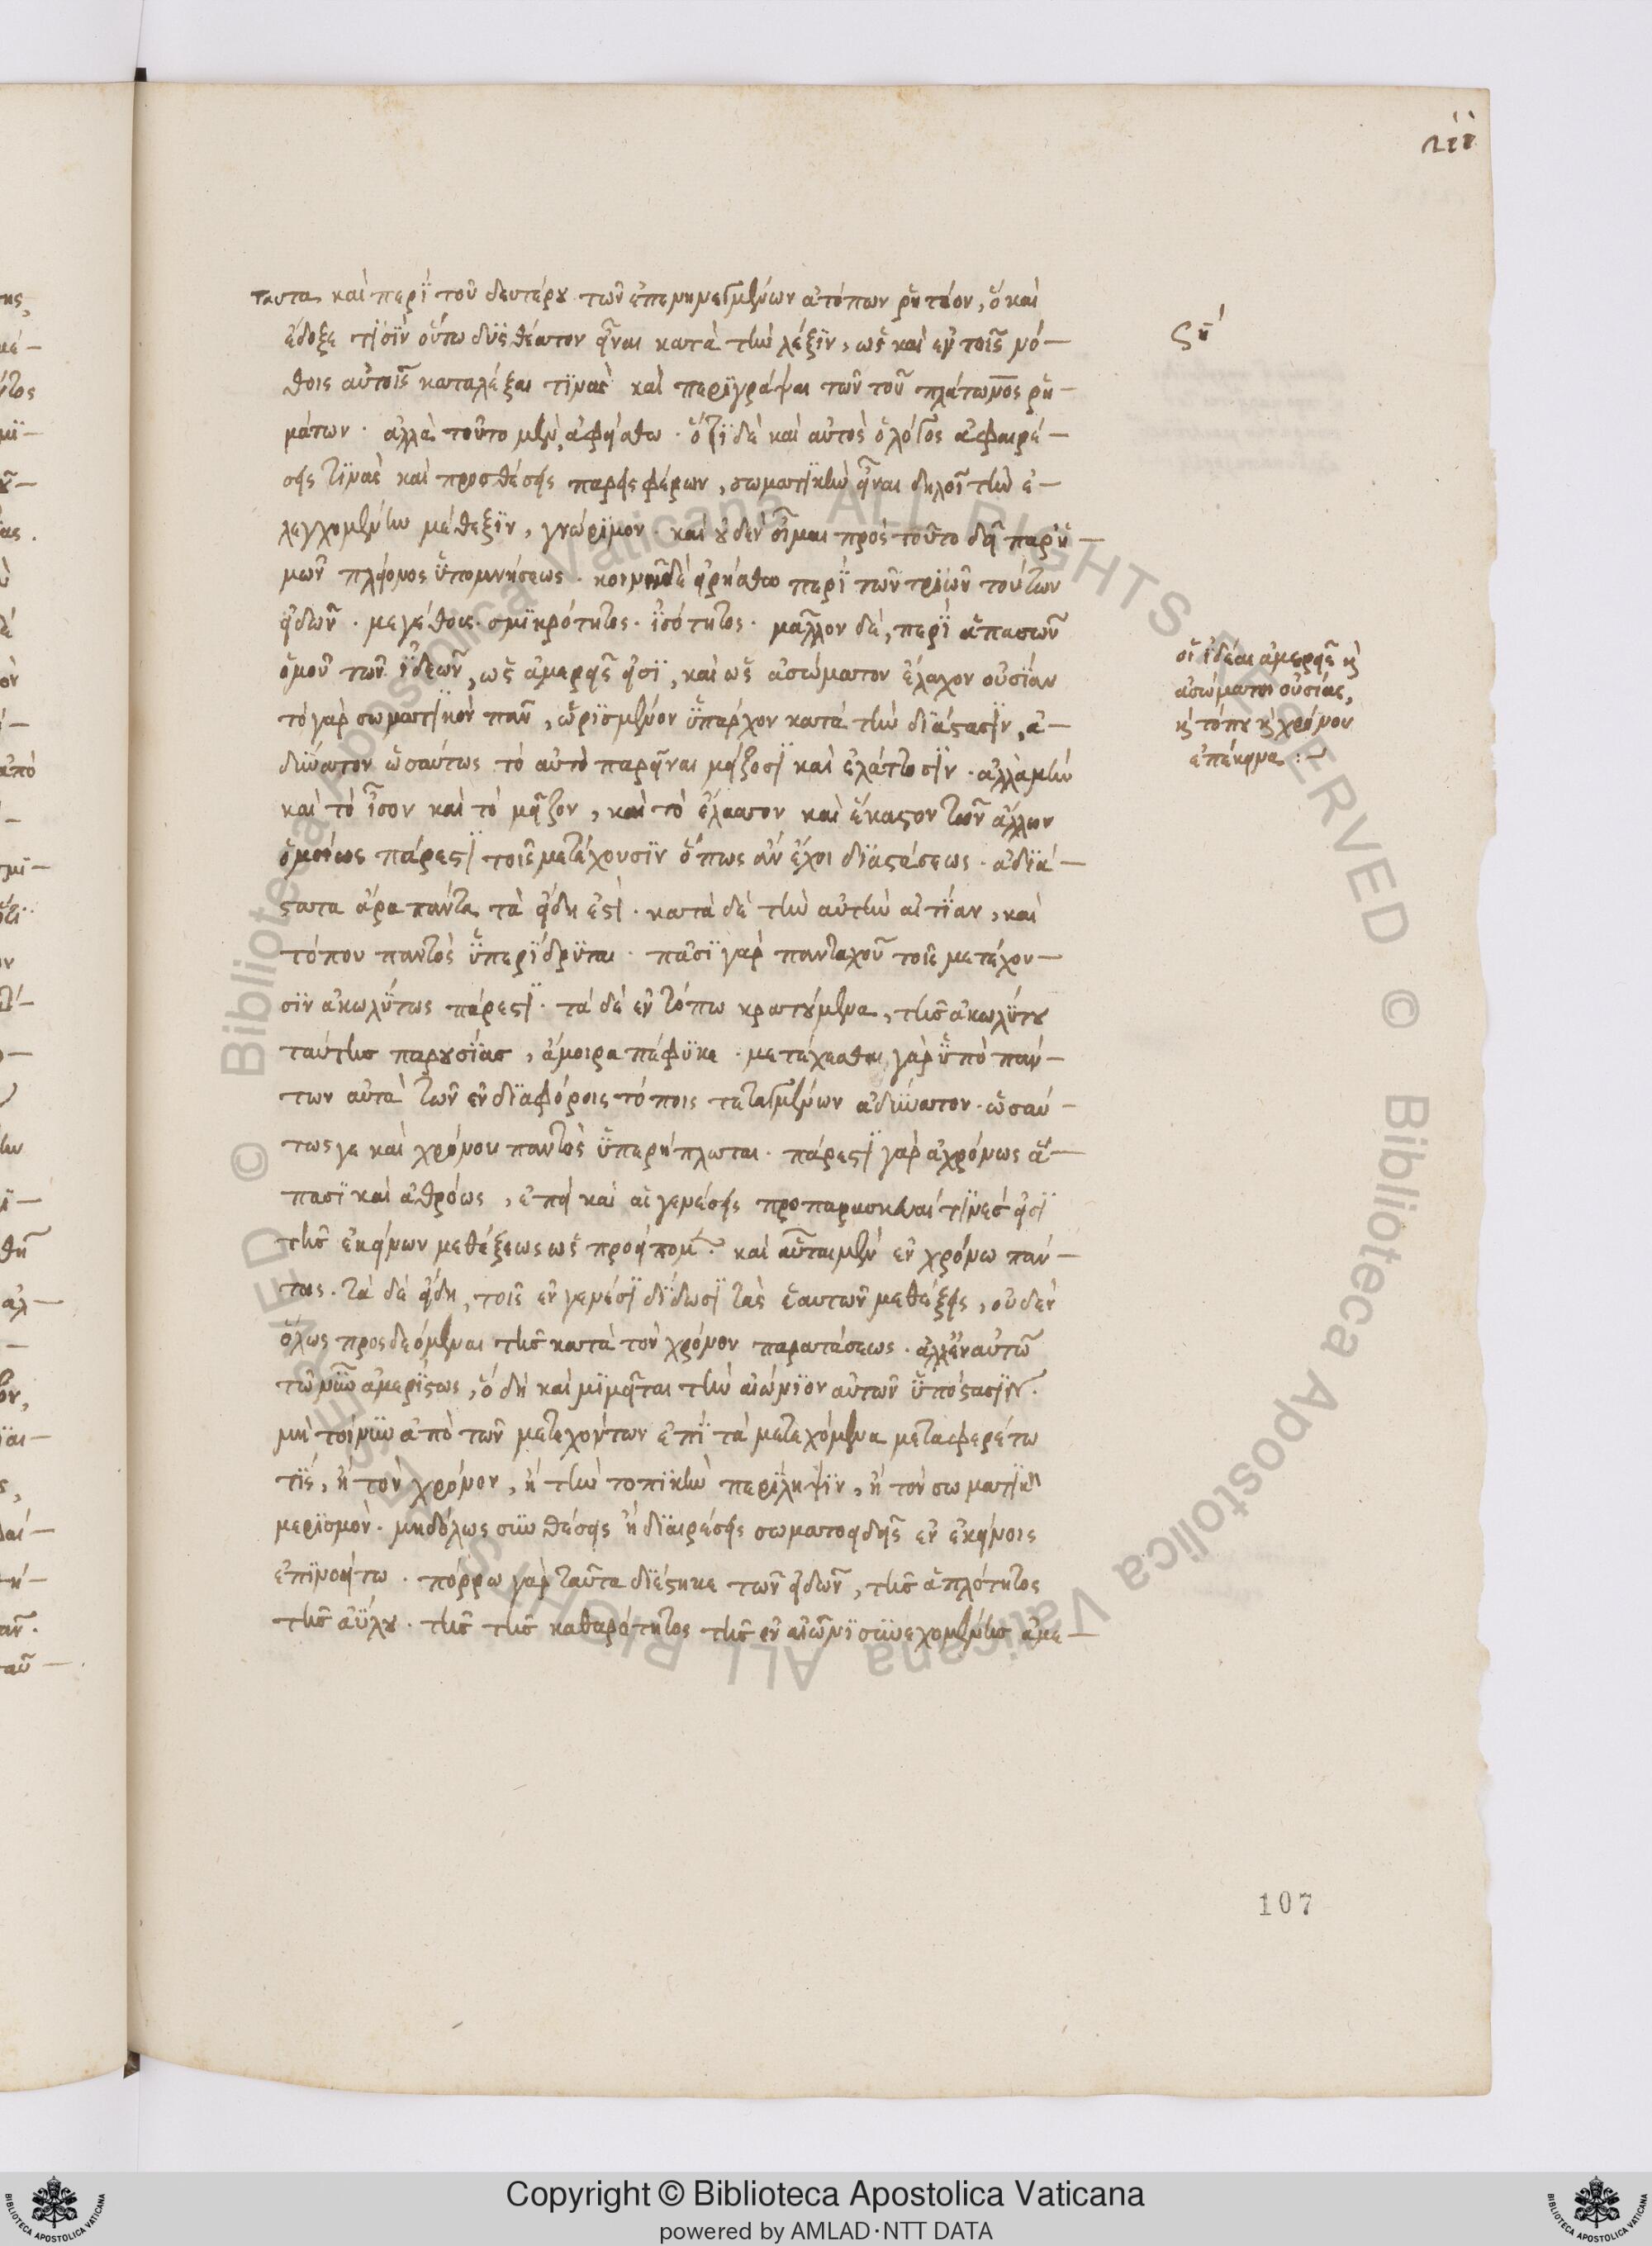 ταῦτα καὶ περὶ τοῦ δευτέρου τῶν ἐπενηνεγμένων ἀτόπων ῥητέον, ὃ καὶ
ἔδοξε τισὶν οὕτω δυσθέατον εἶναι κατὰ τὴν λέξιν, ὡς καὶ ἐν τοῖς νό-
θοις αὐτοῖς καταλέξαι τινὰς καὶ περιγράψαι τῶν τοῦ πλάτωνος ῥη-
μάτων. ἀλλὰ τοῦτο μὲν ἀφείσθω. ὅτι δὲ καὶ αὐτὸς ὁ λόγος ἀφαιρέ-
σεις τινὰς καὶ προσθέσεις παρεισφέρων, σωματικὴν εἶναι δηλοῖ τὴν ἐ-
λεγχομένην μέθεξιν, γνώριμον. καὶ οὐδὲν οἶμαι πρὸς τοῦτο δεῖ παρ' ἡ-
μῶν πλείονος ὑπομνήσεως. κοινῇ δὲ εἰρήσθω περὶ τῶν τριῶν τούτων
εἰδῶν. μεγέθους. σμικρότητος. ἰσότητος. μᾶλλον δὲ, περὶ ἁπασῶν
ὁμοῦ τῶν ἰδεῶν, ὡς ἀμερεῖς εἰσὶ, καὶ ὡς ἀσώματον ἔλαχον οὐσίαν
τὸ γὰρ σωματικὸν πᾶν, ὡρισμένον ὑπάρχον κατὰ τὴν διάστασιν, ἀ-
δύνατον ὡσαύτως τὸ αὐτὸ παρεῖναι μείζοσι καὶ ἐλάττοσιν. ἀλλὰ μὴν
καὶ τὸ ἴσον καὶ τὸ μεῖζον, καὶ τὸ ἔλασσον καὶ ἕκαστον τῶν ἄλλων
ὁμοίως πάρεστι τοῖς μετέχουσιν ὅπως ἂν ἔχοι διαστάσεως. ἀδιά-
στατα ἄρα πάντα τὰ εἴδη ἐστί. κατὰ δὲ τὴν αὐτὴν αἰτίαν, καὶ
τόπου παντὸς ὑπερίδρυται. πᾶσι γὰρ πανταχοῦ τοῖς μετέχου-
σιν ἀκωλύτως πάρεστι. τὰ δὲ ἐν τόπω κρατούμενα, τῆς ἀκωλύτου
ταύτης παρουσίας, ἄμοιρα πέφυκε. μετέχεσθαι γὰρ ὑπὸ πάν-
των αὐτὰ τῶν ἐν διαφόροις τόποις τεταγμένων ἀδύνατον. ὡσαύ-
τως γε καὶ χρόνου παντὸς ὑπερήπλωται. πάρεστι γὰρ ἀχρόνως ἅ-
πασι καὶ ἀθρόως, ἐπεὶ καὶ αἱ γενέσεις προπαρασκευαί τινές εἰσι
τῆς ἐκείνων μεθέξεως ὡς προείπομεν. καὶ αὗται μὲν ἐν χρόνω πάν-
τως. τὰ δὲ εἴδη, τοῖς ἐν γενέσι δίδωσι τὰς ἑαυτῶν μεθέξεις, οὐδὲν
ὅλως προσδεόμεναι τῆς κατὰ τὸν χρόνον παρατάσεως. ἀλλ' ἐν αὐτῶ
τῶ νῦν ἀμερίστως, ὃ δὴ καὶ μιμεῖται τὴν αἰώνιον αὐτῶν ὑπόστασιν.
μὴ τοίνυν ἀπὸ τῶν μετεχόντων ἐπὶ τὰ μετεχόμενα μεταφερέτω
τίς, ἢ τὸν χρόνον, ἢ τὴν τοπικὴν περίληψιν, ἢ τὸν σωματικὸν
μερισμόν. μηδ' ὅλως συνθέσεις ἢ διαιρέσεις σωματοειδεῖς ἐν ἐκείνοις
ἐπινοείτω. πόρρω γὰρ ταῦτα διέστηκε τῶν εἰδῶν, τῆς ἁπλότητος
τῆς ἀΰλου. τῆς τῆς καθαρότητος τῆς ἐν αἰῶνι συνεχομένης ἀμε-
ϛη´
οἱ ἰδέαι ἀμερεῖς καὶ
ἀσώματοι οὐσίας,
καὶ τόπου καὶ χρόνου
ἐπέκεινα :~
107
Copyright © Biblioteca Apostolica Vaticana
powered by AMLAD·NTT DATA